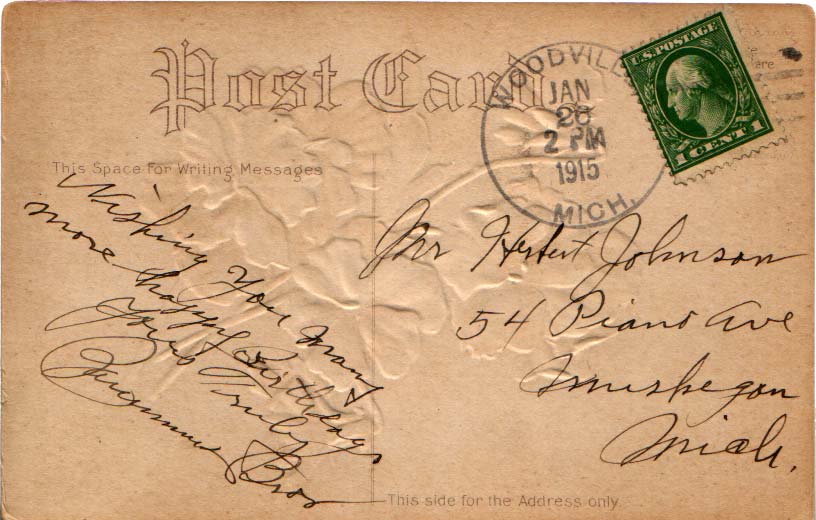 Post Card
This Space For Writing Messages
Wishing You Many
more happy Birthdays
Yours Truly
Bros
WOODVILL
JAN
2 PM
1915
MICH.
U.S. POSTAGE
1 CENT 1
are
Mr Herbert Johnson
54 Piano Ave
Muskegon
Mich.
This side for the Address only.